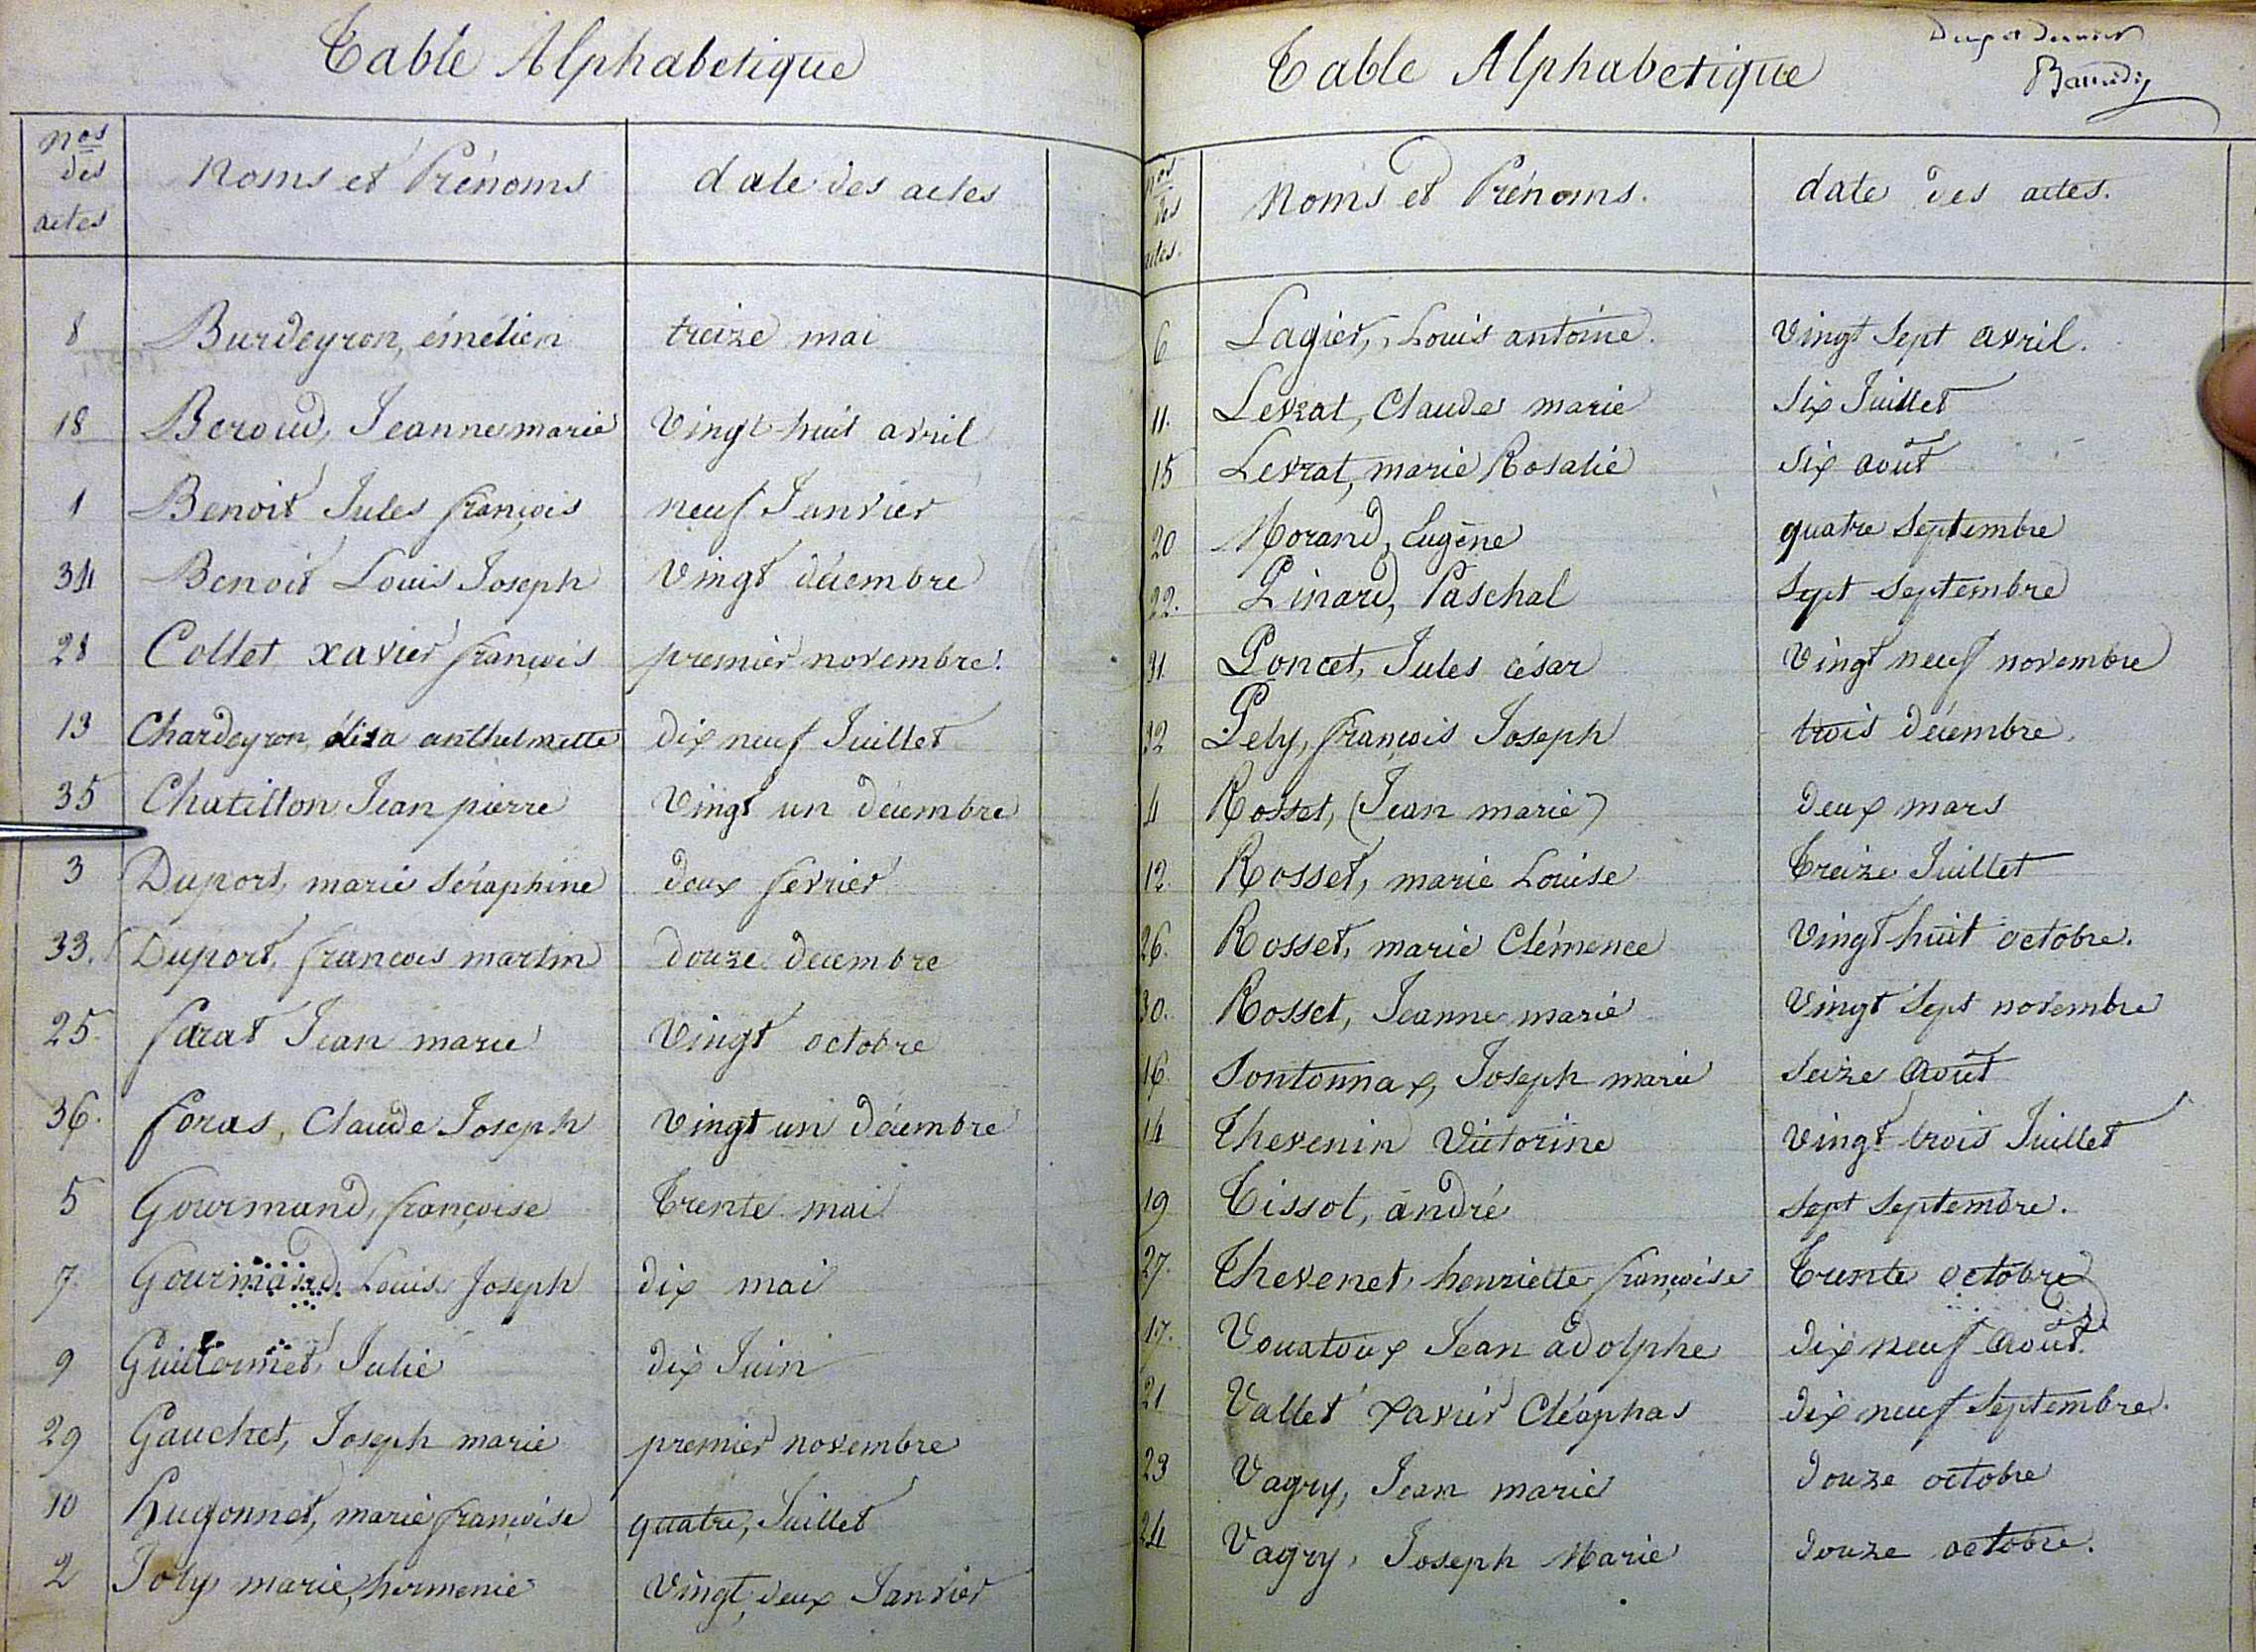 Table Alphabetique
nos des actes Noms et Prénoms date des actes
8 Burdeyron, émélien treize mai
18 Beroud, Jeanne marie Vingt huit avril
1 Benoit Jules françois neuf Janvier
34 Benoit Louis Joseph Vingt décembre
28 Collet xavier françois premier novembre.
13 Chardeyron, éliza anthelmette dix neuf Juillet
35 Chatillon Jean pierre Vingt un décembre
3 Duport, marie Séraphine deux fevrier
33. Duport, francois martin douze decembre
25. farat Jean marie Vingt octobre
36. foras, Claude Joseph Vingt un décembre
5 Gourmand, françoise Trente mai
7. Gourmand, Louis Joseph dix mai
9 Guillermet, Julie dix Juin
29 Gauchet, Joseph marie premier novembre
10 Hugonnet, marie françoise quatre, Juillet
2 Joly, marie, hermenie Vingt, deux Janvier
Table Alphabetique
nos des actes. Noms et Prénoms. date des actes.
6 Lagier, Louis antoine. Vingt Sept avril.
11. Levrat, Claude marie Six Juillet
15 Levrat, marie Rosalie Six août
20 Morand, Eugène quatre Septembre
22. Pinard, Paschal Sept Septembre
31. Poncet, Jules césar Vingt neuf novembre
32 Pely, françois Joseph trois décembre.
4 Rosset, (Jean marie) deux mars
12. Rosset, marie Louise Treize Juillet
26. Rosset, marie Clémence Vingt huit octobre.
30. Rosset, Jeanne marie Vingt Sept novembre
16. Sontonnax, Joseph marie Seize Août
14 Thevenin Victorine Vingt trois Juillet
19 Tissot, andré Sept Septembre.
27. Thevenet, henriette françoise Trente octobre
17. Vouatoux Jean adolphe dix neuf Août.
21 Vallet Xavier Cléophas dix neuf Septembre.
23 Vagry, Jean marie douze octobre
24 Vagry, Joseph Marie douze octobre.